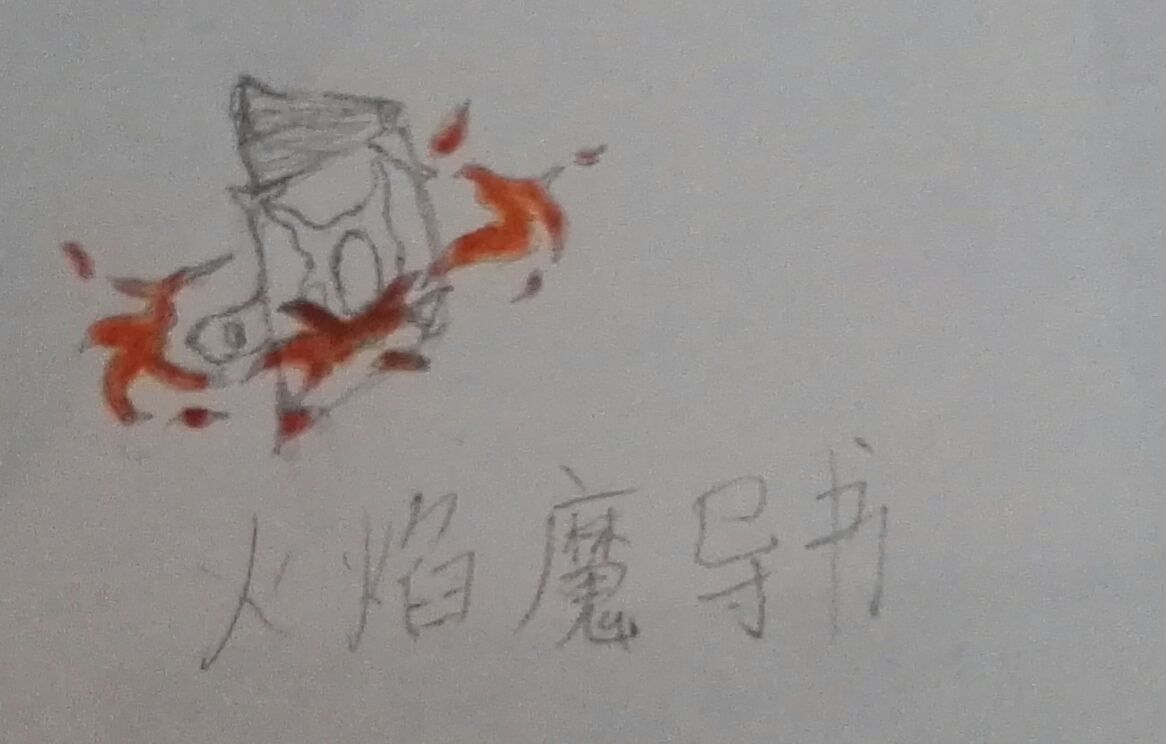 火焰魔导书